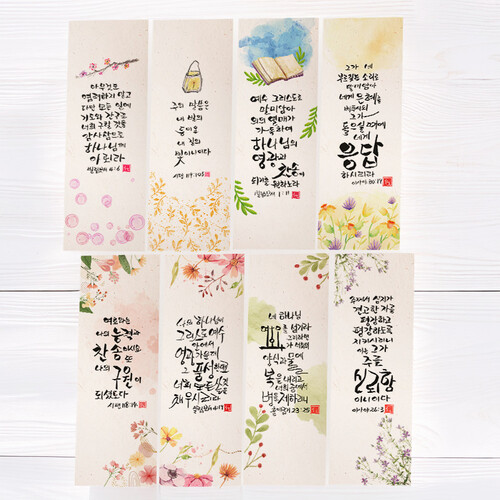 아무것도
염려하지 말고
다만 모든 일에
기도와 간구로
너희 구할 것을
감사함으로
하나님께
아뢰라
빌립보서 4:6
주의 말씀은
내 발의
등이요
내 길의
빛이니이다
시편 119:105
예수 그리스도로
말미암아
의의 열매가
가득하여
하나님의
영광과
찬송이
되기를 원하노라
빌립보서 1:11
그가 네
부르짖는 소리로
말미암아
네게 은혜를
베푸시되
그가
들으실 때에
네게
응답
하시리라
이사야 30:19
여호와는
나의 능력과
찬송이시요 또
나의
구원이
되셨도다
시편 118:14
나의 하나님이
그리스도 예수
안에서
영광 가운데
그 풍성한 대로
너희 모든 쓸 것을
채우시리라
빌립보서 4:19
네 하나님
여호와를 섬기라
그리하면
여호와가
양식과 물에
복을 내리고
너희 중에서
병을 제하리니
출애굽기 23:25
주께서 심지가
견고한 자를
평강하고
평강하도록
지키시리니
이는 그가
주를
신뢰함
이니이다
이사야 26:3